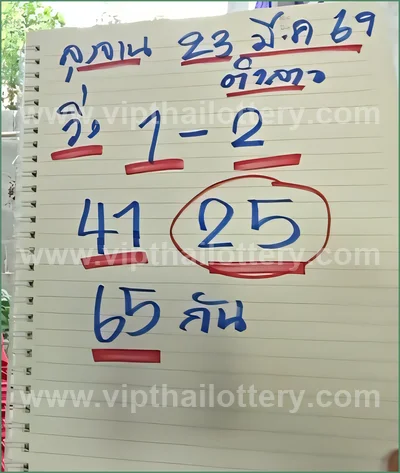 ลุงจาน 23 มี.ค 69
ตำลาว
www.vipthailottery.com
วิ่ง 1-2
41 25
www.vipthailottery.com
65 กัน
www.vipthailottery.com